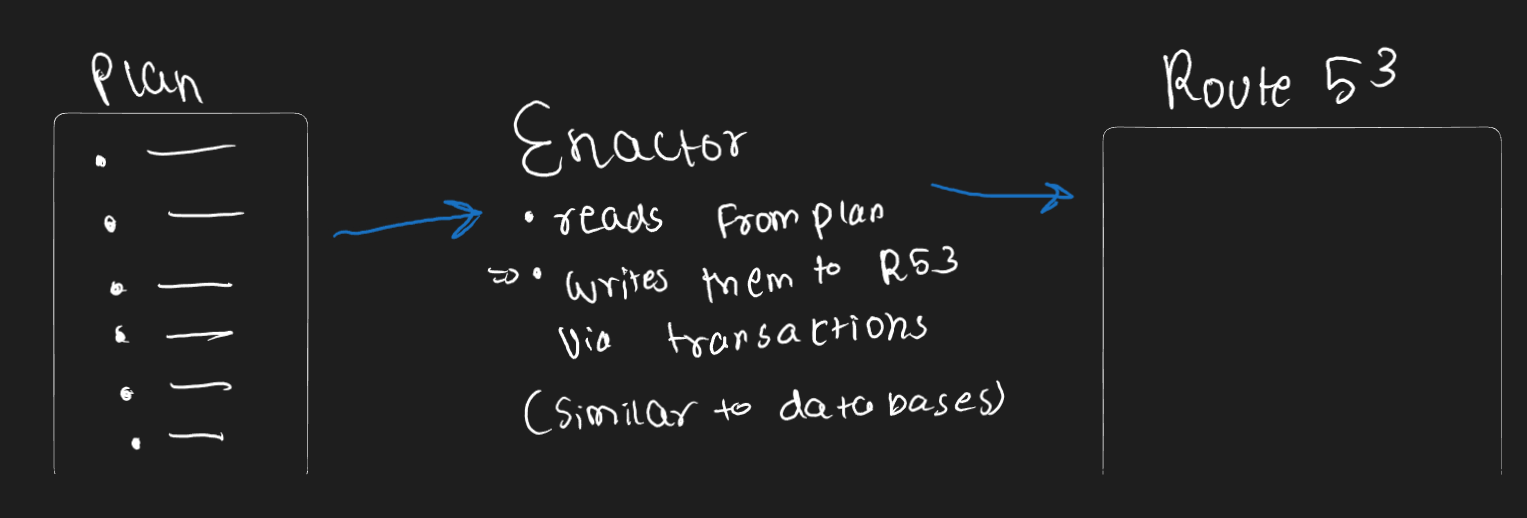 Plan
Enactor
• reads From plan
⇒ • writes them to R53
Via transactions
(Similar to databases)
Route 53